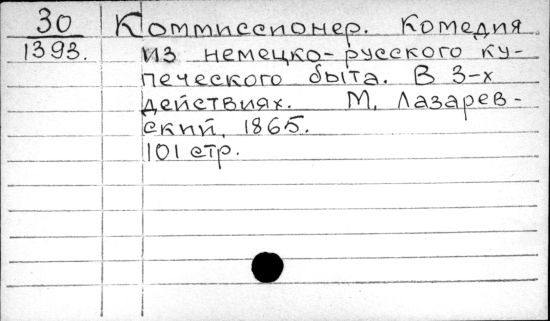 30 Коммиссионер. Комедия
1393. из немецко-русского ку-
печеского быта. В 3-х
действиях. М, Лазарев-
ский, 1865.
101 стр.